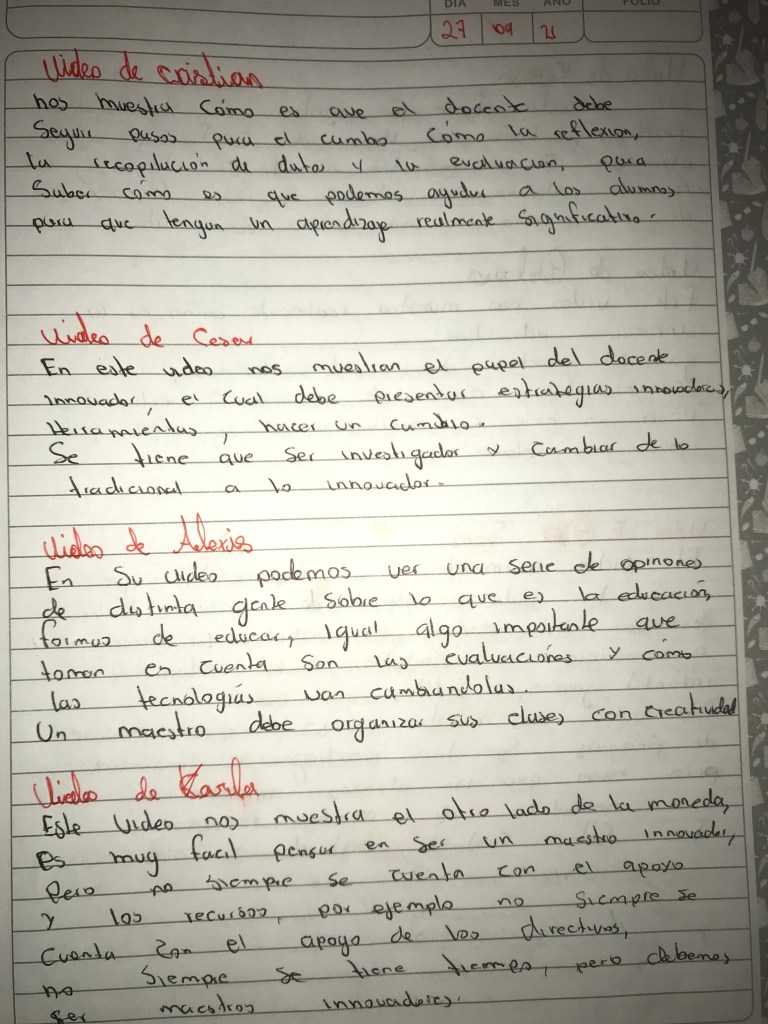 DIA MES AÑO FOLIO
27 09 21
Video de cristian
nos muestra cómo es que el docente debe
Seguir pasos para el cambio cómo la reflexion,
la recopilación de datos y la evaluacion, para
Saber cómo es que podemos ayudar a los alumnos
para que tengan un aprendizaje realmente significativo.
Video de Cesar
En este video nos muestran el papel del docente
innovador, el cual debe presentar estrategias innovadoras,
Herramientas, hacer un cambio.
Se tiene que ser investigador y cambiar de lo
tradicional a lo innovador.
Video de Alexis
En Su video podemos ver una serie de opinones
de distinta gente sobre lo que es la educación,
formas de educar, igual algo importante que
toman en cuenta son las evaluaciones y cómo
las tecnologías van cambiandolas.
Un maestro debe organizar sus clases con creatividad
Video de Karla
Este video nos muestra el otro lado de la moneda,
es muy facil pensar en ser un maestro innovador,
Pero no siempre se cuenta con el apoyo
y los recursos, por ejemplo no siempre se
cuenta con el apoyo de los directivos,
no siempre se tiene tiempo, pero debemos
ser maestros innovadores.